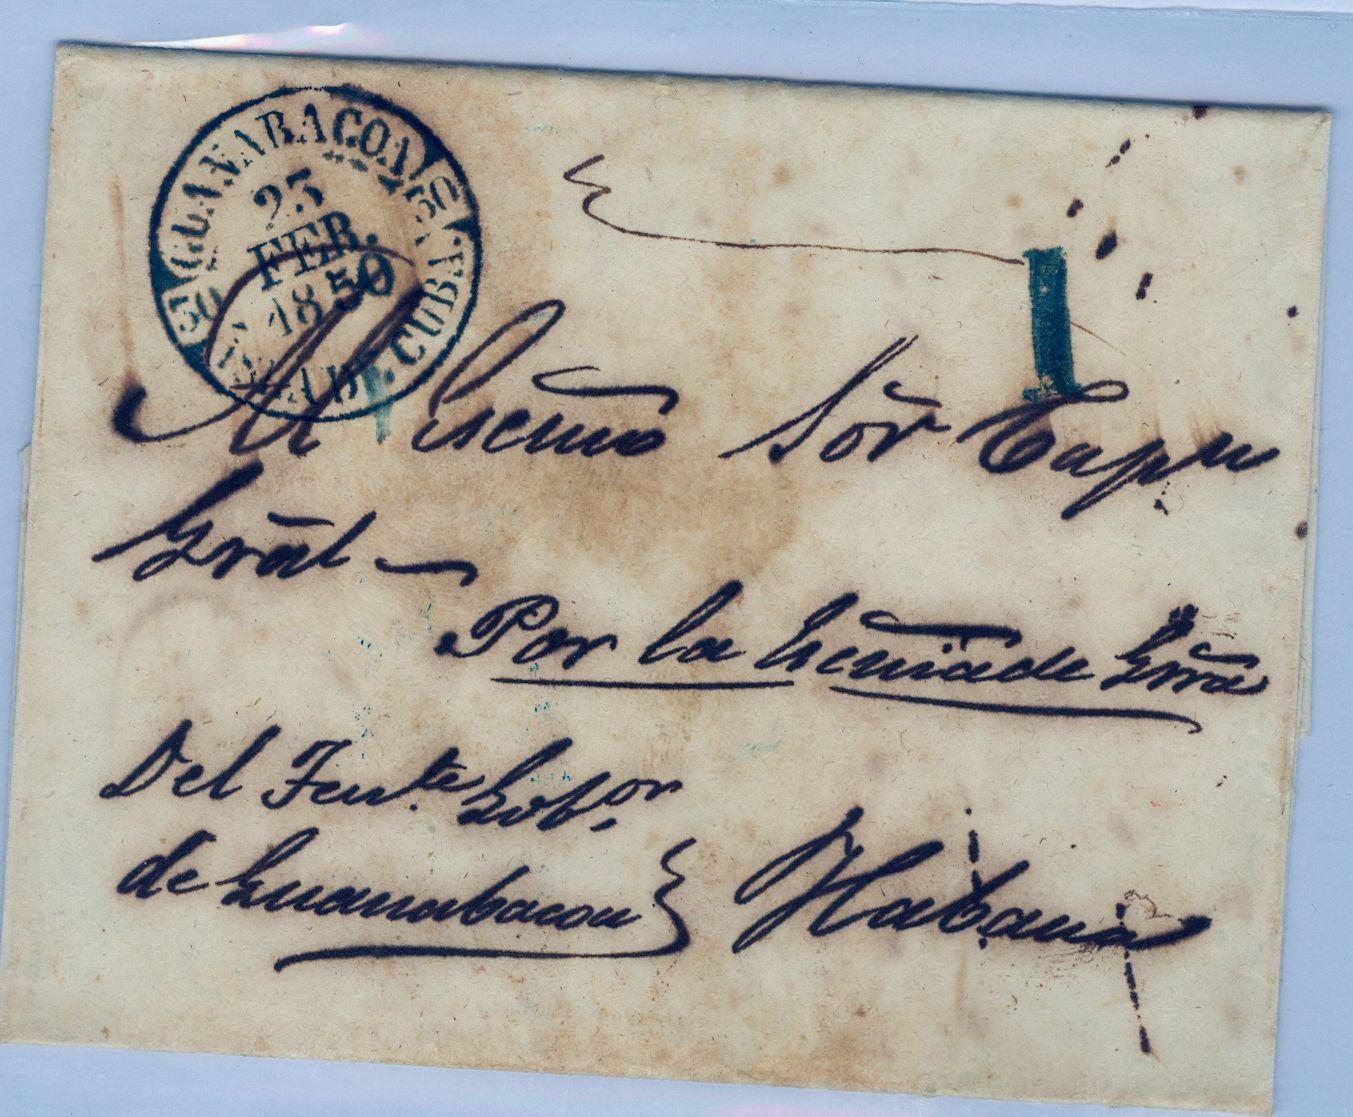 GUANABACOA
50
23
FEB.
1850
50
ISLA DE CUBA.
1
Al Escmo Sōr Capn
Grāl
Por la Secriade Grra
Del Tente Gobor
de Guanabacoa
Habana